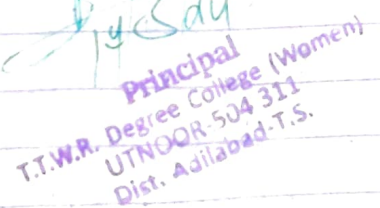 Principal
T.T.W.R. Degree College (Women)
UTNOOR-504 311
Dist. Adilabad-T.S.